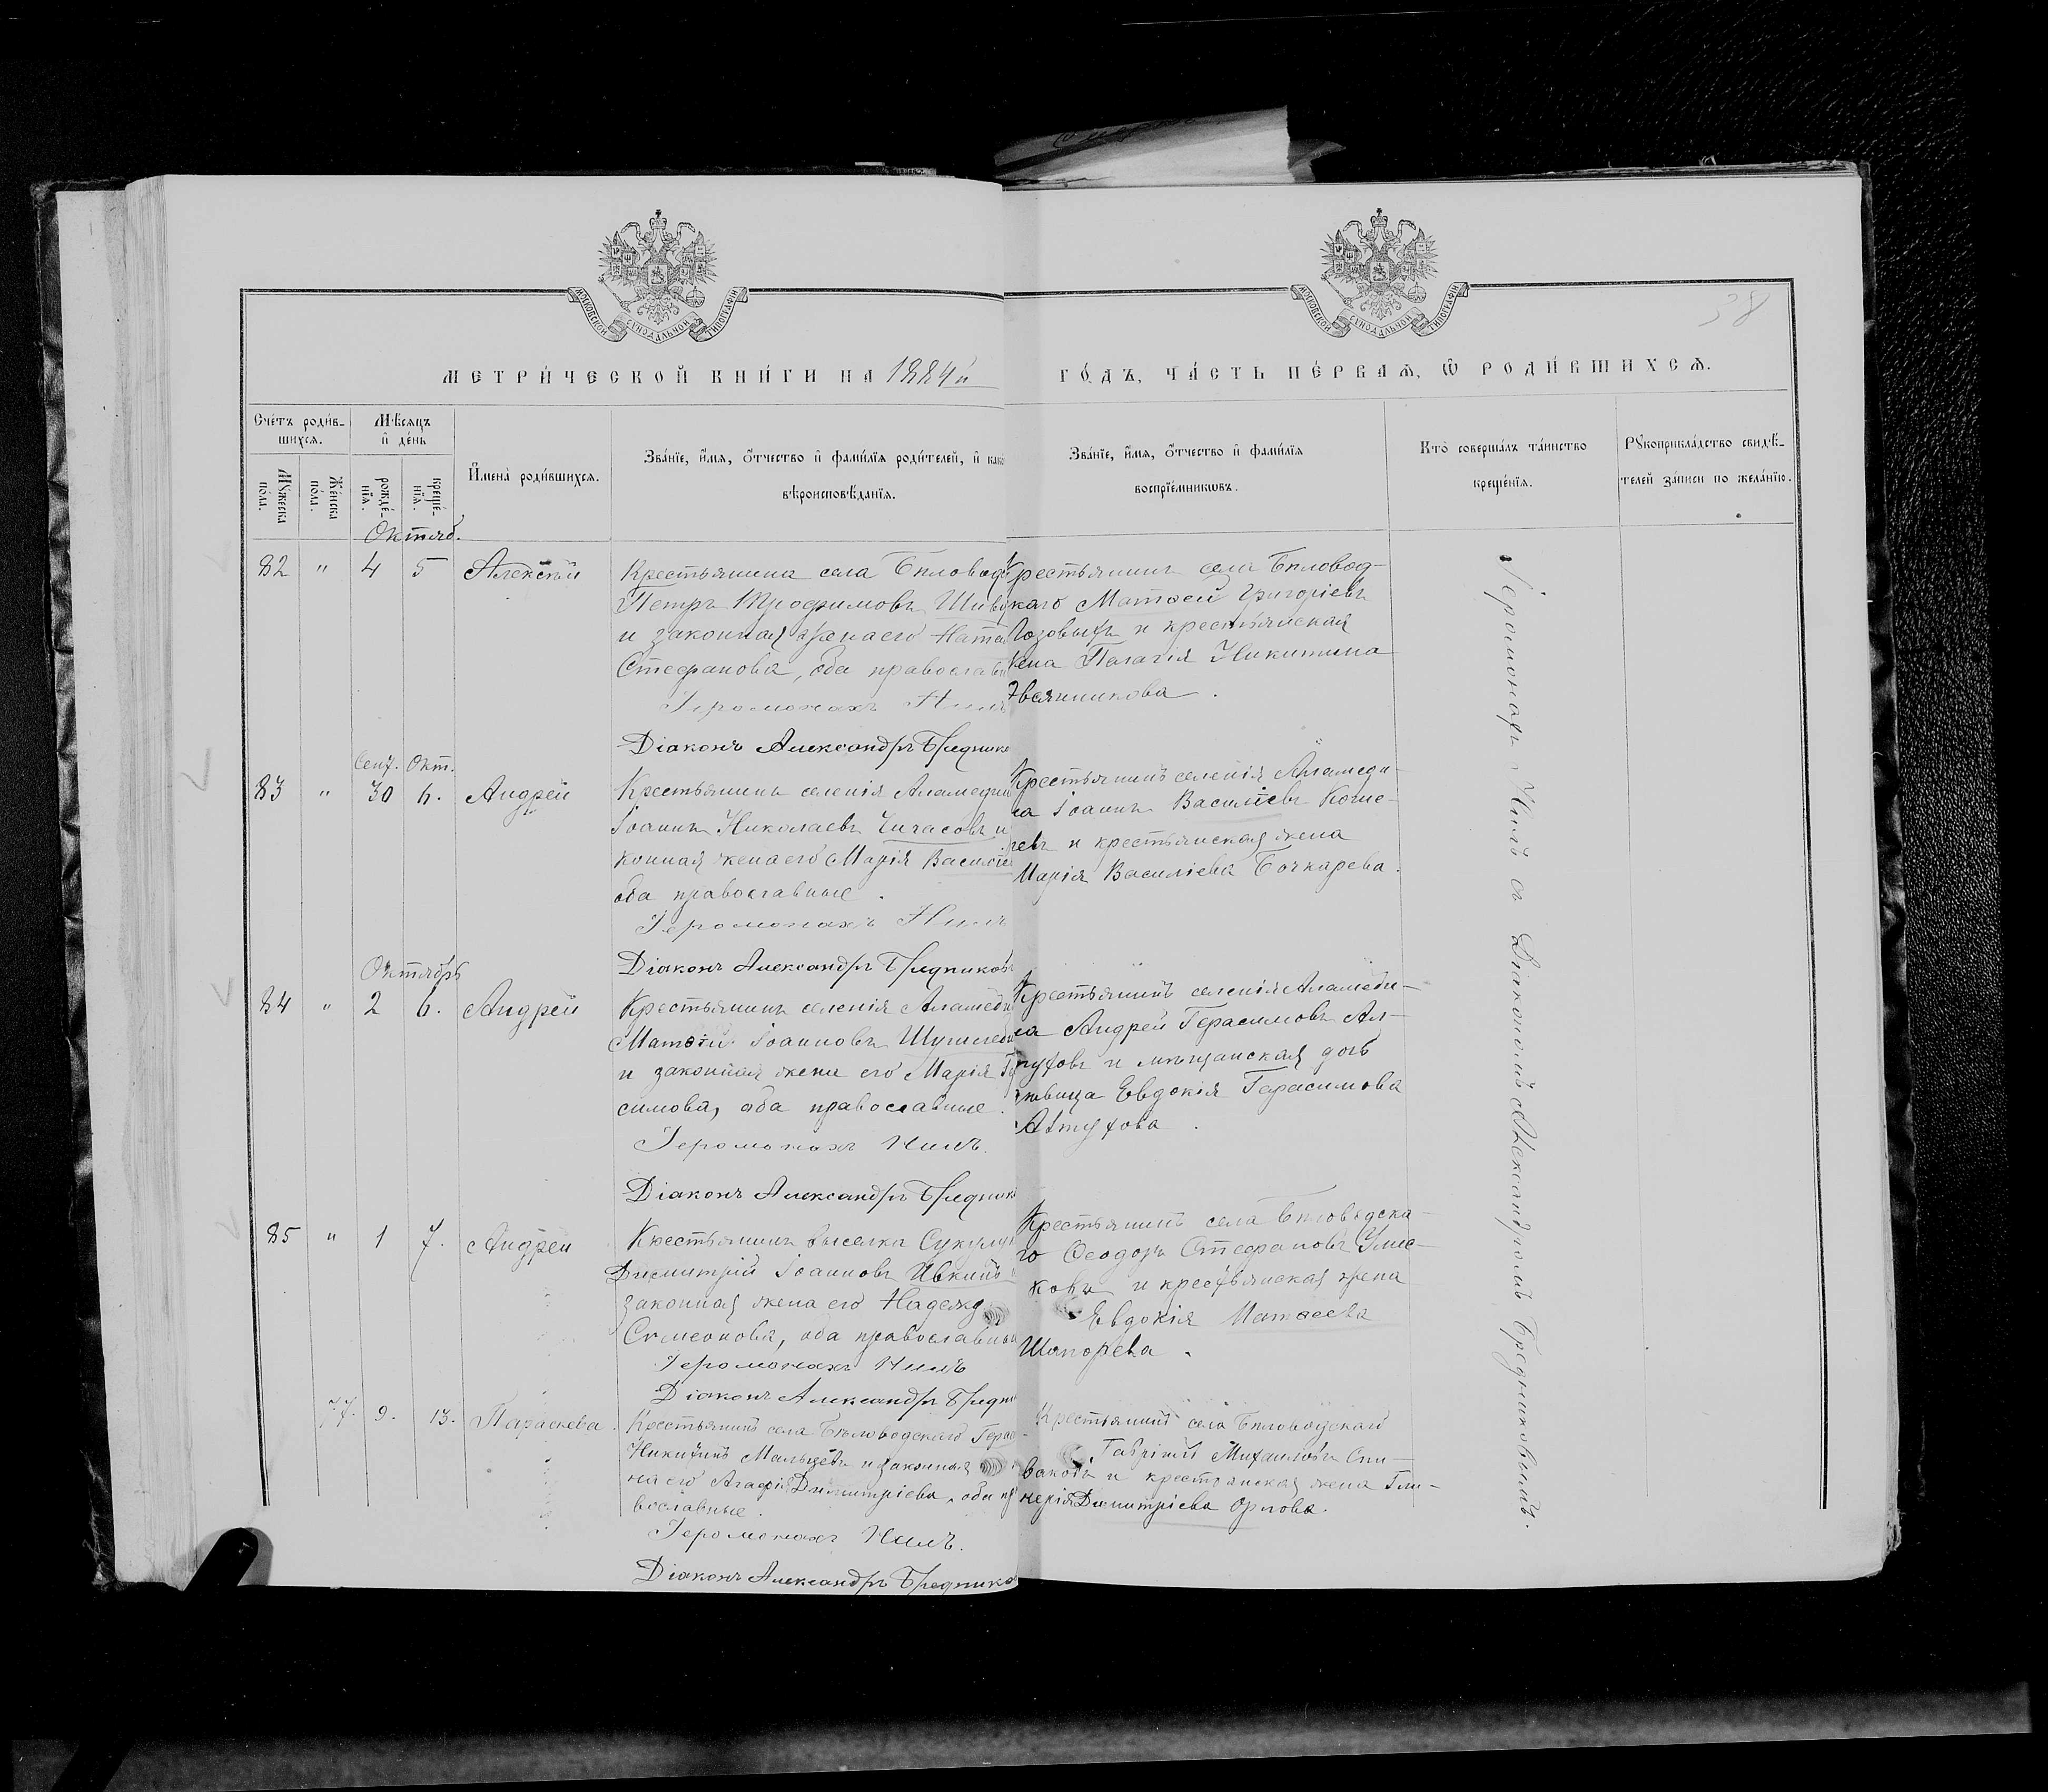 МОСКОВСКОЙ СѴНОДАЛЬНОЙ ТИПОГРАФІИ
МОСКОВСКОЙ СѴНОДАЛЬНОЙ ТИПОГРАФІИ
38
МЕТРИ́ЧЕСКОЙ КНИ́ГИ НА 1884й
ГО́ДЪ, ЧА́СТЬ ПЕ́РВАѦ, Ѡ҆ РОДИ́ВШИХСѦ.
Сче́тъ роди́в-
шихсѧ.
Мѣ́сѧцъ
и҆ де́нь
Мꙋ́жеска
по́ла.
Же́нска
по́ла.
рожде́-
нїѧ.
креще́-
нїѧ.
И҆мена̀ роди́вшихсѧ.
Зва́нїе, и҆́мѧ, ѻ҆́тчество и҆ фами́лїѧ роди́телей, и҆ како
вѣроисповѣ́данїѧ.
Зва́нїе, и҆́мѧ, ѻ҆́тчество и҆ фами́лїѧ
воспрїе́мникѡвъ.
Кто̀ соверша́лъ та́инство
креще́нїѧ.
Рꙋкоприкла́дство свидѣ́-
телей за́писи по жела́нїю.
Октяб.
82 " 4 5 Алексѣй
Крестьянина села Бѣловод
Петръ Трофимовъ
и законная жена его Ната
Стефанова, оба православн
Іеромонахъ Нилъ
Діаконъ Александръ Бреднико
Крестьянинъ села Бѣловод-
каго Матѳей Григоріевъ
и крестьянская
жена Палагія Никитина
Овсянникова.
Сент. Окт.
83 " 30 6. Андрей
Крестьянинъ селенія Аламедин
Іоаннъ Николаевъ Чичасовъ и
конная жена его Марія Василіе
оба православные.
Іеромонахъ Нилъ
Діаконъ Александръ Бредниковъ
Крестьянинъ селенія Аламеди-
на Іоаннъ Василіевъ Коше-
левъ и крестьянская жена
Марія Василіева Бочкарева.
Октябрь
84 " 2 6. Андрей
Крестьянинъ селенія Аламеди
Матѳій Іоанновъ
и законная жена его Марія Гера
симова, оба православные.
Іеромонахъ Нилъ.
Діаконъ Александръ Бреднико
Крестьянинъ селенія Аламеди-
на Андрей Герасимовъ Ал-
туховъ и мѣщанская дочь
дѣвица Евдокія Герасимова
Алтухова.
85 " 1 7. Андрей
Крестьянинъ выселка Сукулу
Димитрій Іоанновъ Ивкинъ и
законная жена его Надежд
Симеонова, оба православны
Іеромонахъ Нилъ
Діаконъ Александръ Бредни
Крестьянинъ села Бѣловодска-
го Ѳеодоръ Стефановъ
ковъ и крестьянская жена
Евдокія Матѳеева
Шапорева.
77. 9. 13. Параскева.
Крестьянинъ села Бѣловодскаго Герас
Никитинъ Мальцевъ и законная
на его Агафія Димитріева, оба пра
вославные.
Іеромонахъ Нилъ.
Діаконъ Александръ Бреднико
Крестьянинъ села Бѣловодскаго
Гавріилъ Михаиловъ Спи-
ваковъ и крестьянская жена Гли-
керія Димитріева Орлова.
Іеромонахъ Нилъ съ Діакономъ Александромъ Бредниковымъ.